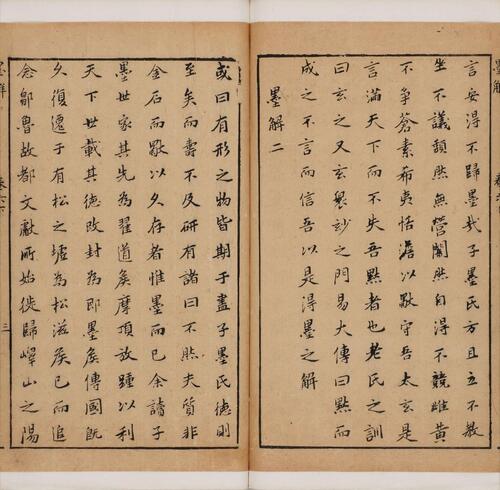 言安得不歸墨哉子墨氏方且立不教
坐不議頹然無營闇然自得不競雌黃
不爭蒼素希夷恬澹以默守吾太玄是
言滿天下而不失吾黙者也老氏之訓
曰玄之又玄衆玅之門易大傳曰黙而
成之不言而信吾以是得墨之解
墨解二
或曰有形之物皆期于盡子墨氏德則
至矣而壽不及研有諸曰不然夫質非
金石而歇以久存者惟墨而已余讀子
墨世家其先為翟道矦摩頂放踵以利
天下世載其德改封為即墨矦傳國旣
久復遷于有松之墟為松滋矦已而追
念鄒魯故都文獻所始徙歸嶧山之陽
墨解
三